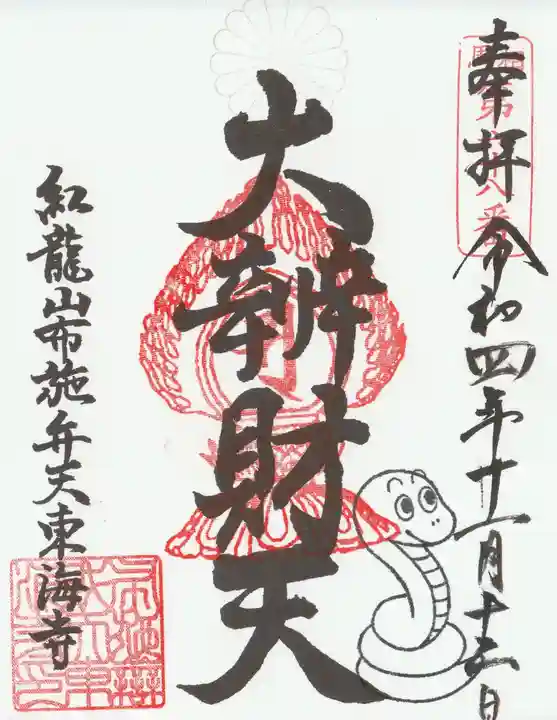 奉拝
令和四年十一月十三日
大辨財天
紅龍山布施弁天東海寺